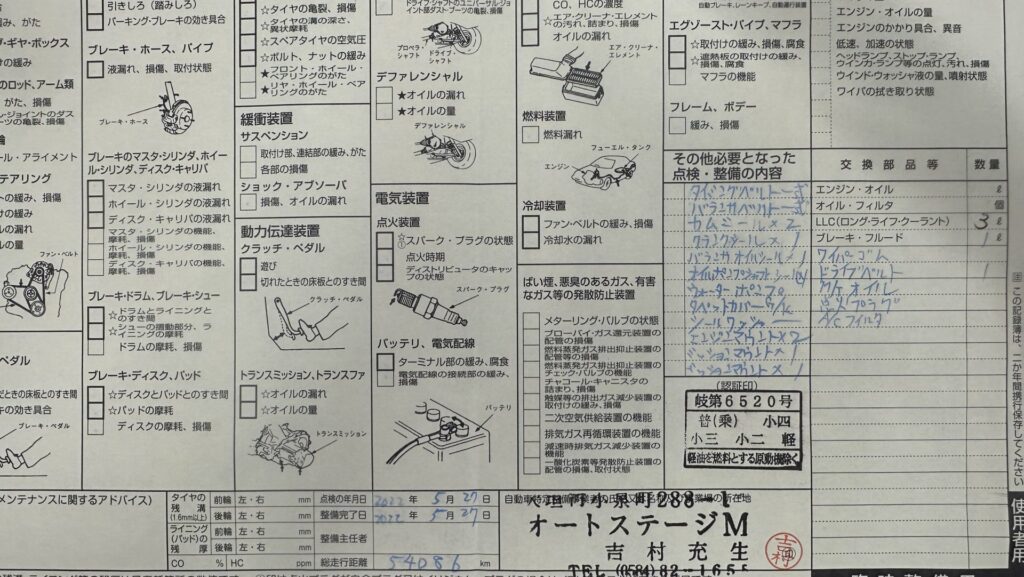 引きしろ(踏みしろ)
パーキング・ブレーキの効き具合
ブレーキ・ホース、パイプ
液漏れ、損傷、取付状態
ブレーキ・ホース
ブレーキのマスタ・シリンダ、ホイー
ル・シリンダ、ディスク・キャリパ
マスタ・シリンダの液漏れ
ホイール・シリンダの液漏れ
ディスク・キャリパの液漏れ
マスタ・シリンダの機能、
摩耗、損傷
ホイール・シリンダの機能、
摩耗、損傷
ディスク・キャリパの機能、
摩耗、損傷
ブレーキ・ドラム、ブレーキ・シュー
☆ドラムとライニングと
のすき間
☆シューの摺動部分、ラ
イニングの摩耗
ドラムの摩耗、損傷
ブレーキ・ディスク、パッド
☆ディスクとパッドとのすき間
☆パッドの摩耗
ディスクの摩耗、損傷
ファン・ベルト
ブレーキ・ペダル
☆タイヤの亀裂、損傷
☆タイヤの溝の深さ、
異状摩耗
☆スペアタイヤの空気圧
☆ボルト、ナットの緩み
★フロント・ホイール・
ベアリングのがた
★リヤ・ホイール・ベア
リングのがた
緩衝装置
サスペンション
取付部、連結部の緩み、がた
各部の損傷
ショック・アブソーバ
損傷、オイルの漏れ
動力伝達装置
クラッチ・ペダル
遊び
切れたときの床板とのすき間
クラッチ・ペダル
トランスミッション、トランスファ
☆オイルの漏れ
☆オイルの量
トランスミッション
プロペラ・
シャフト
ドライブ・
シャフト
デファレンシャル
★オイルの漏れ
★オイルの量
デファレンシャル
電気装置
点火装置
スパーク・プラグの状態
点火時期
ディストリビュータのキャッ
プの状態
スパーク・プラグ
バッテリ、電気配線
ターミナル部の緩み、腐食
電気配線の接続部の緩み、
損傷
バッテリ
CO、HCの濃度
☆エア・クリーナ・エレメント
の汚れ、詰まり、損傷
オイルの漏れ
エア・クリーナ・
エレメント
燃料装置
燃料漏れ
フューエル・タンク
エンジン
冷却装置
ファン・ベルトの緩み、損傷
冷却水の漏れ
ばい煙、悪臭のあるガス、有害
なガス等の発散防止装置
メターリング・バルブの状態
ブローバイ・ガス還元装置の
配管の損傷
燃料蒸発ガス排出抑止装置の
配管等の損傷
燃料蒸発ガス排出抑止装置の
チェック・バルブの機能
チャコール・キャニスタの
詰まり、損傷
触媒等の排出ガス減少装置の
取付けの緩み、損傷
二次空気供給装置の機能
排気ガス再循環装置の機能
減速時排気ガス減少装置の
機能
一酸化炭素等発散防止装置の
配管の損傷、取付状態
エグゾースト・パイプ、マフラ
☆取付けの緩み、損傷、腐食
☆遮熱板の取付けの緩み、
損傷、腐食
マフラの機能
フレーム、ボデー
緩み、損傷
その他必要となった
点検・整備の内容
タイミングベルト一式
バランサベルト一式
カムシール×2
クランクシール×1
バランサオイルシール×1
ウォーターポンプ
エンジンマウント×2
ミッションマウント×1
(認証印)
岐第6520号
普(乗) 小四
小三 小二 軽
軽油を燃料とする原動機除く
エンジン・オイルの量
エンジンのかかり具合、異音
低速、加速の状態
ヘッドランプ、ストップ・ランプ、
ウインカ・ランプ等の点灯、汚れ、損傷
ウインド・ウォッシャ液の量、噴射状態
ワイパの拭き取り状態
交換部品等 数量
エンジン・オイル ℓ
オイル・フィルタ 個
LLC(ロング・ライフ・クーラント) 3 ℓ
ブレーキ・フルード 1 ℓ
ワイパーゴム
ドライブベルト 1
点火プラグ
A/Cフィルタ
注 この記録簿は、二か年間携行保存してください
使用者用
メンテナンスに関するアドバイス)
タイヤの
残溝
(1.6mm以上)
前輪 左・右 mm
後輪 左・右 mm
ライニング
(パッド)の
残厚
前輪 左・右 mm
後輪 左・右 mm
CO % HC ppm
点検の年月日 2022年 5月 27日
整備完了日 2022年 5月 27日
整備主任者
総走行距離 54086 km
大垣市小泉町288-1
オートステージM
吉村充生
TEL (0584)82-1655
吉村